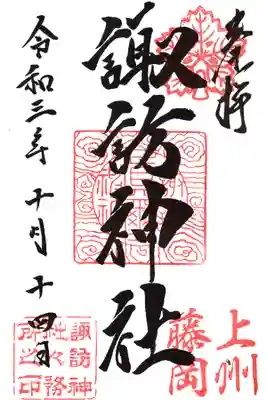 奉拝
諏訪神社
令和三年十月十四日
上州
藤岡
諏訪神
社々務
所之印